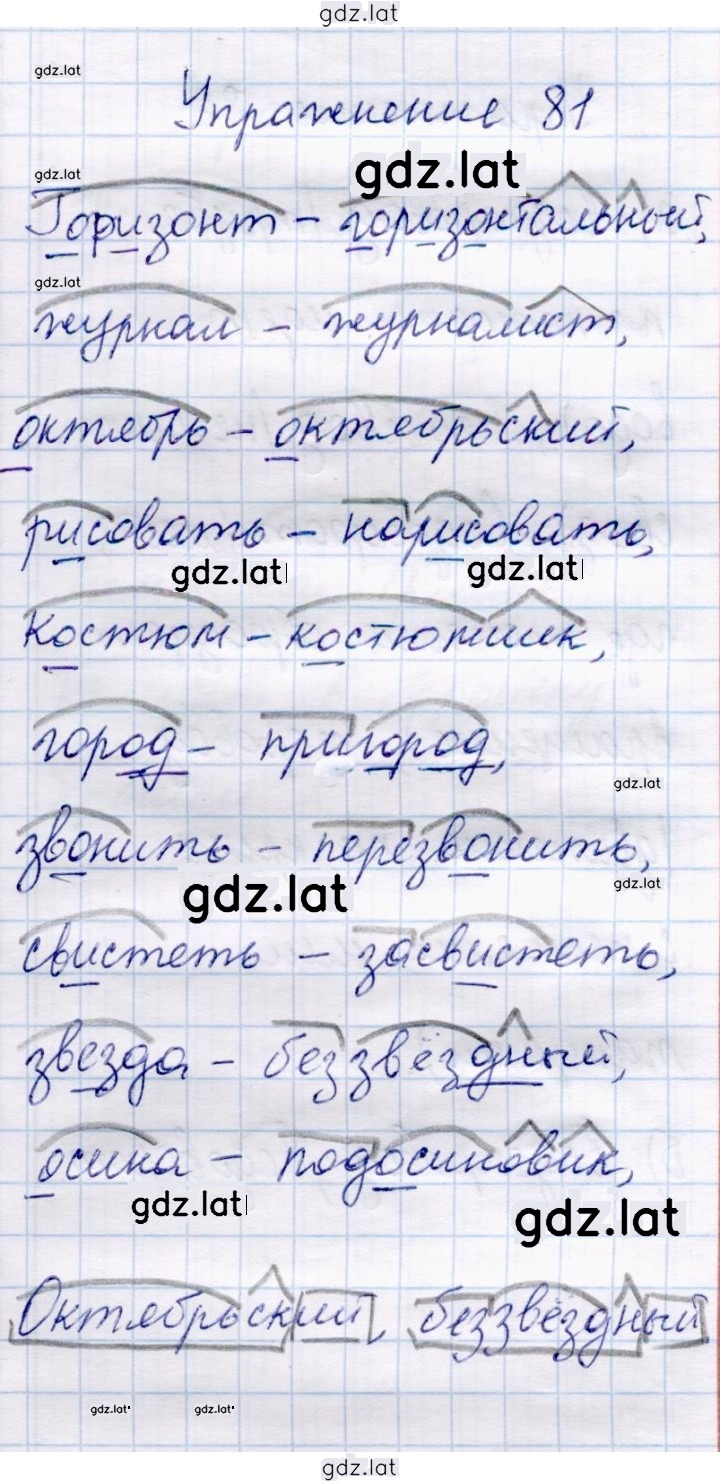 gdz.lat
gdz.lat
Упражнение 81
gdz.lat
gdz.lat
Горизонт - горизонтальный,
gdz.lat
журнал - журналист,
октябрь - октябрьский,
рисовать - нарисовать,
gdz.lat gdz.lat
костюм - костюмшик,
город - пригород,
gdz.lat
звонить - перезвонить,
gdz.lat
gdz.lat
свистеть - засвистеть,
звезда - беззвёздный,
осина - подосиновик,
gdz.lat
gdz.lat
Октябрьский, беззвёздный
gdz.lat gdz.lat
gdz.lat